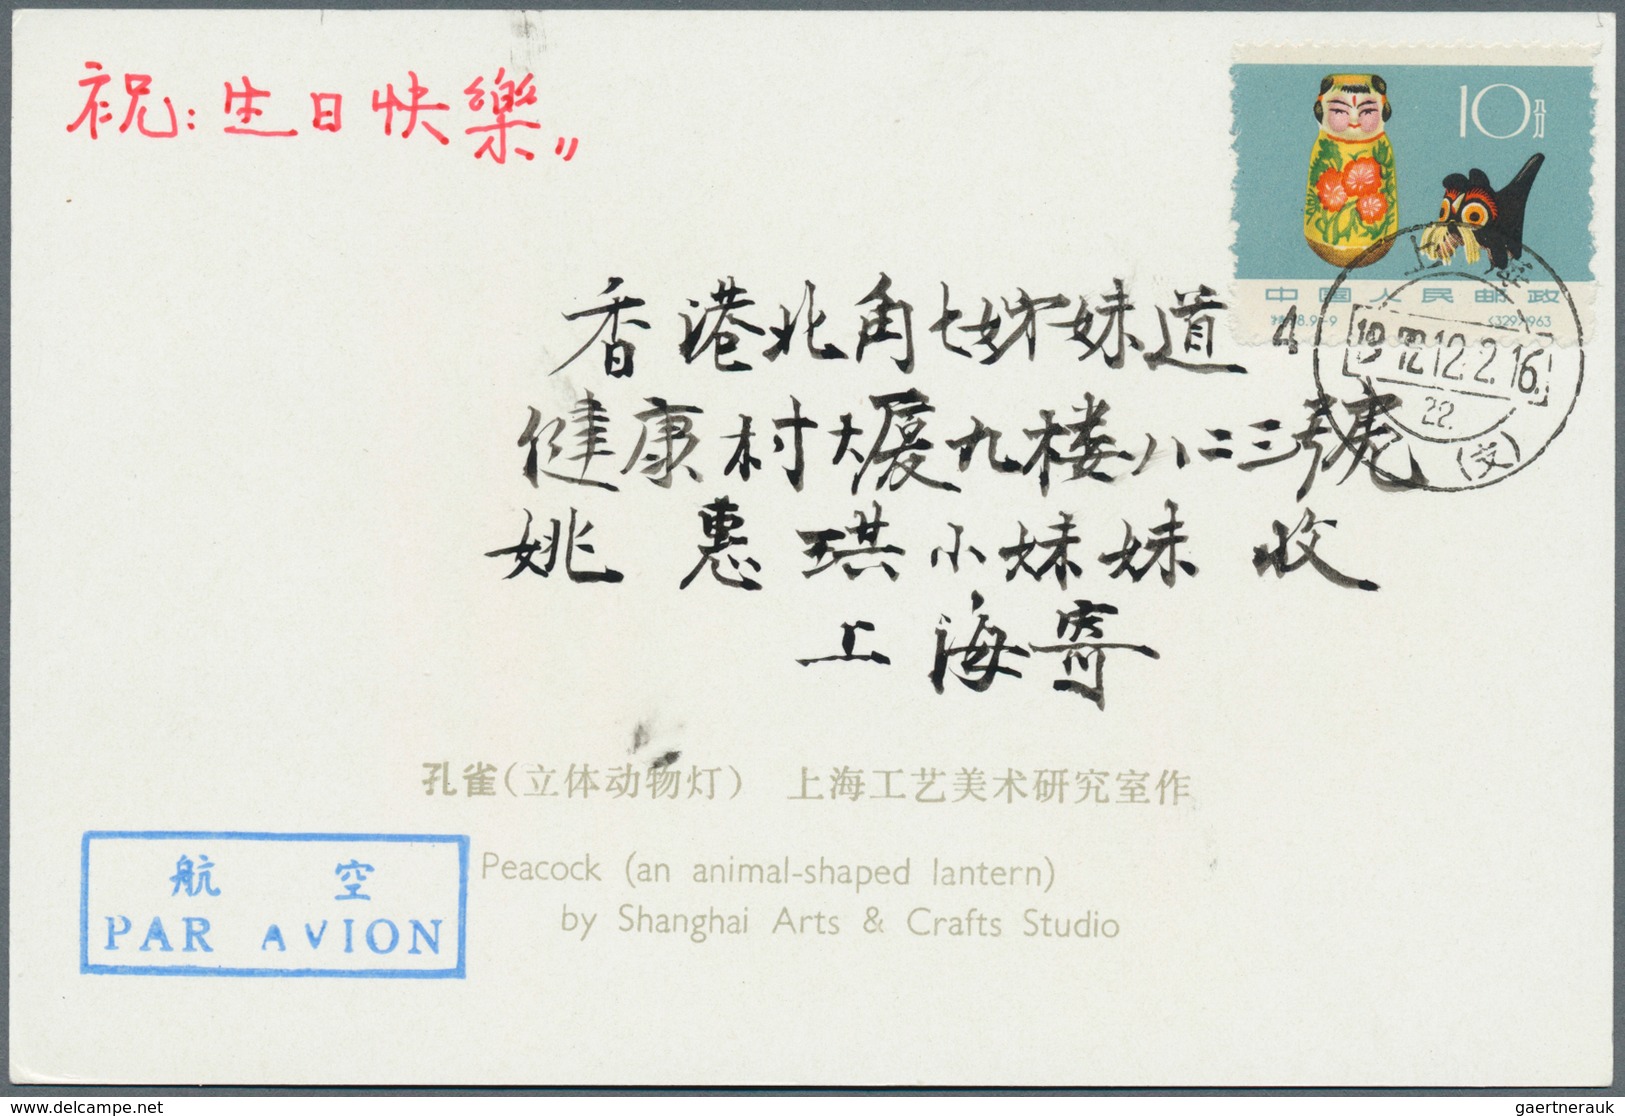 祝：生日快樂〃
10分
中国人民邮政
香港北角七姊妹道 4
健康村大廈九楼八二三號
姚惠琪小妹妹收
上海寄
上海
1972.12.2.16
22.
(支)
孔雀(立体动物灯) 上海工艺美术研究室作
航空
PAR AVION
Peacock (an animal-shaped lantern)
by Shanghai Arts & Crafts Studio
gaertnerauk / www.delcampe.net